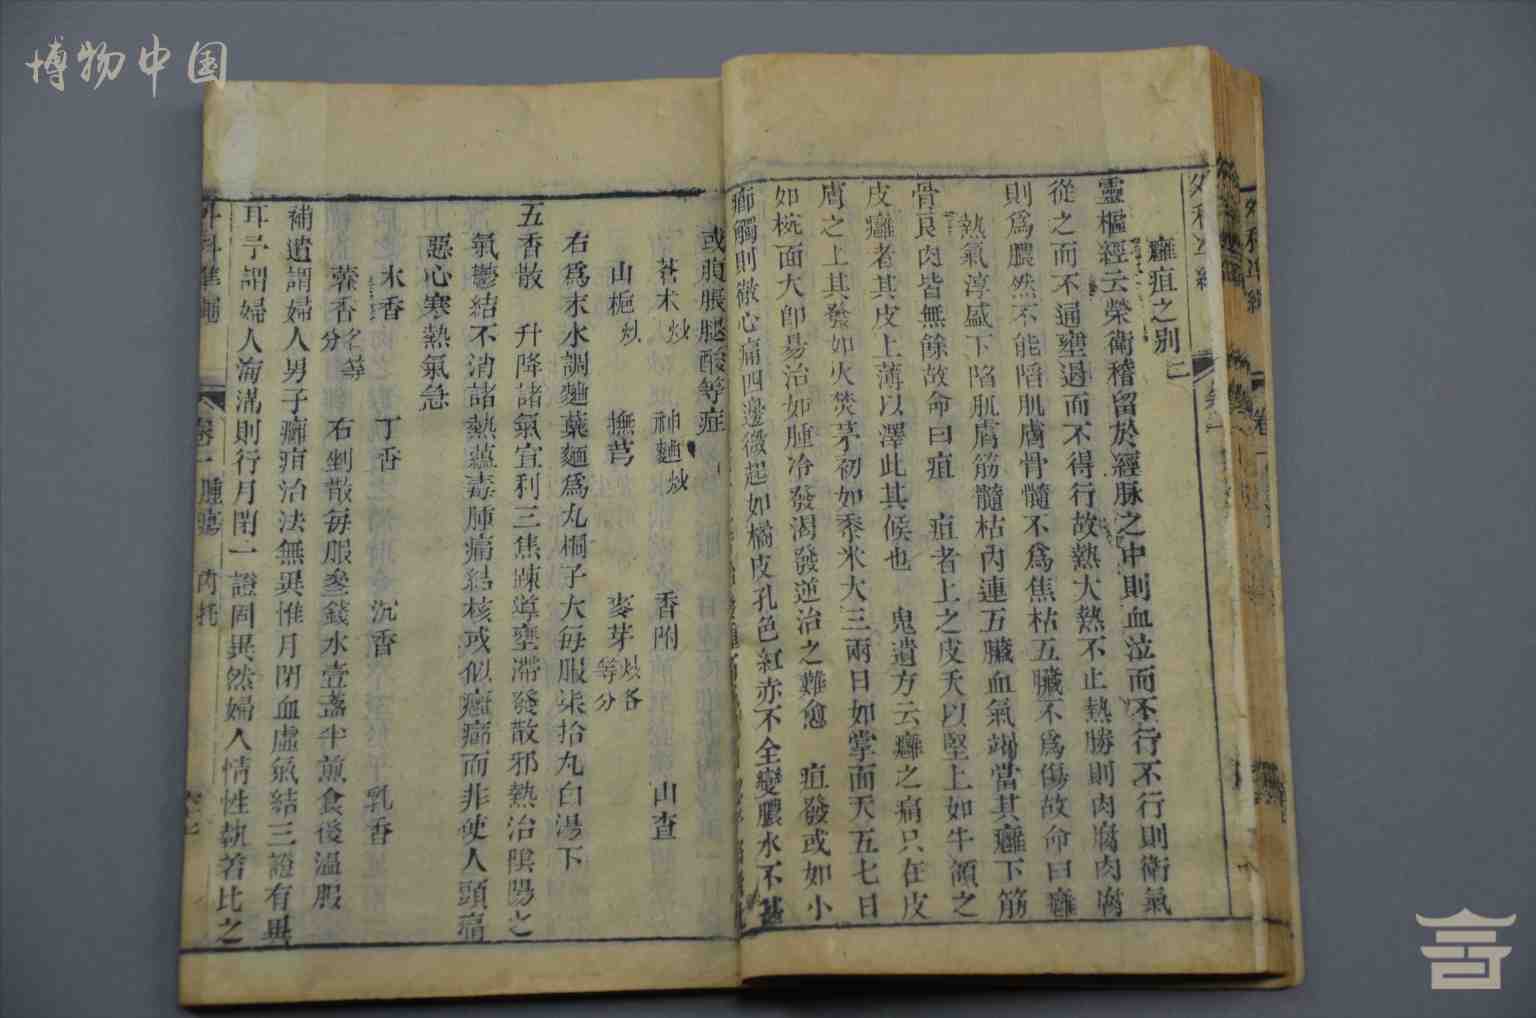 博物中国
癰疽之別二
靈樞經云榮衛稽留於經脉之中則血泣而不行不行則衛氣
從之而不通壅遏而不得行故熱大熱不止熱勝則肉腐肉腐
則爲膿然不能陷肌膚骨髓不爲焦枯五臟不爲傷故命曰癰
熱氣淳盛下陷肌膚筋髓枯內連五臟血氣竭當其癰下筋
骨良肉皆無餘故命曰疽 疽者上之皮夭以堅上如牛領之
皮癰者其皮上薄以澤此其候也 鬼遺方云癰之痛只在皮
膚之上其發如火焚茅初如黍米大三兩日如掌面大五七日
如椀面大卽易治如腫冷發渴發逆治之難愈 疽發或如小
癤觸則徹心痛四邊微起如橘皮孔色紅赤不全變膿水不甚
或腹脹腿酸等症
蒼术炒 神麯炒 香附 山查
山梔炒 撫芎 麥芽炒各等分
右爲末水調麯藥麵爲丸桐子大每服柒拾丸白湯下
五香散 升降諸氣宜利三焦踈導壅滯發散邪熱治陰陽之
氣鬱結不消諸熱蘊毒腫痛結核或似癰癤而非使人頭痛
惡心寒熱氣急
木香 丁香 沉香 乳香
藿香各等分 右剉散每服叁錢水壹盞半煎食後溫服
補遺謂婦人男子癰疽治法無異惟月閉血虛氣結三證有異
耳予謂婦人胸滿則行月閉一證固異然婦人情性執着比之
外科準繩 卷一 腫瘍 內托